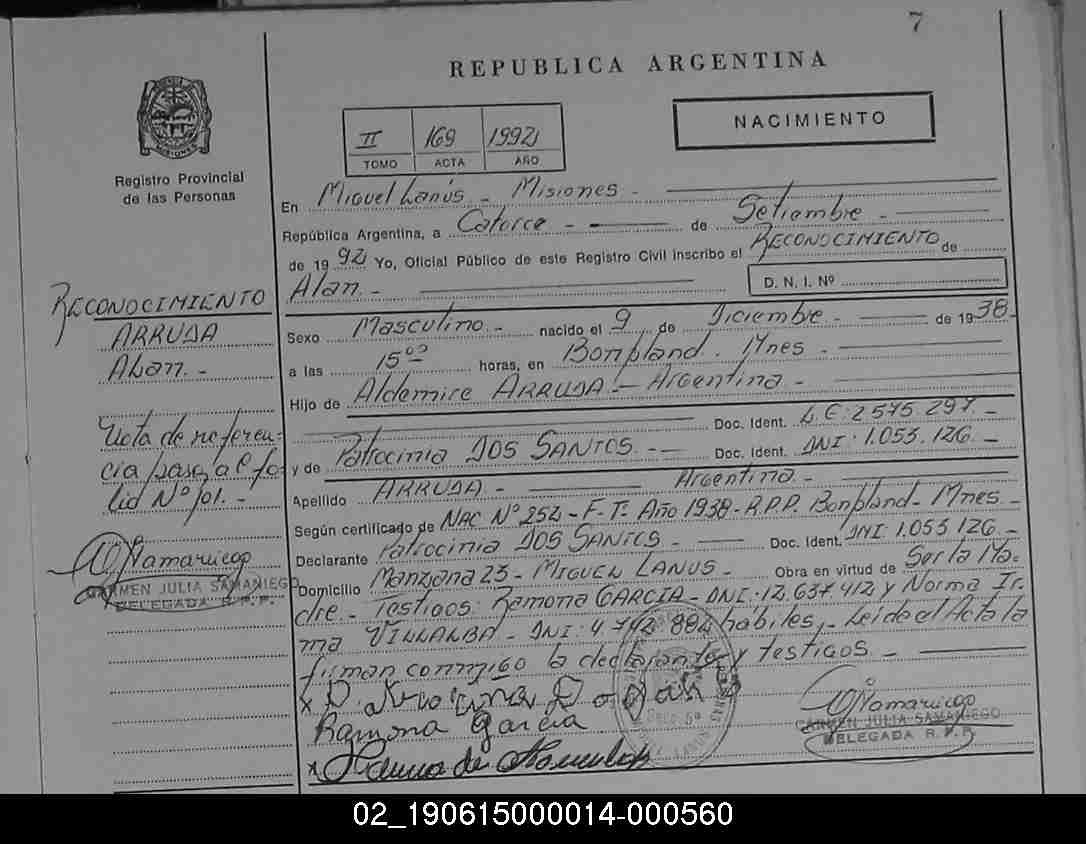 7
REPUBLICA ARGENTINA
NACIMIENTO
II 169 1992
TOMO ACTA AÑO
Registro Provincial
de las Personas
En Miguel Lanús - Misiones -
República Argentina, a Catorce - de Setiembre -
de 1992 Yo, Oficial Público de este Registro Civil inscribo el RECONOCIMIENTO de
Alan. - D. N. I. Nº
RECONOCIMIENTO
ARRUDA
Alan. -
Sexo Masculino. - nacido el 9 de Diciembre - de 1938-
a las 15⁰⁰ horas, en Bonpland. Mnes -
Hijo de Aldemire ARRUDA - Argentina -
Doc. Ident. L.E: 2.575.297. -
y de Patrocinia DOS SANTOS. - Doc. Ident. DNI: 1.053.126 -
Argentina -
Apellido ARRUDA -
Nota de referen-
cia pasa al fo-
lio Nº 101. -
Según certificado de NAC. Nº 252 - F - Tº Año 1938 - R.P.P. Bonpland - Mnes -
Declarante Patrocinia DOS SANTOS - Doc. Ident. DNI: 1.053.126 -
Domicilio Manzana 23 - MIGUEL LANUS - Obra en virtud de Ser la Ma-
dre. - Testigos: Ramona GARCIA - DNI: 12.637.412 y Norma Ir-
ma VILLALBA - DNI: 4.742.882 hábiles, - Leida el Acta la
firman conmigo la declarante y testigos -
CARMEN JULIA SAMANIEGO
DELEGADA R.P.P.
Ramona Garcia
CARMEN JULIA SAMANIEGO
DELEGADA R.P.P.
02_190615000014-000560